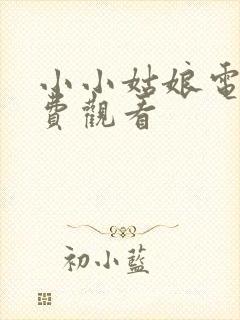 小小姑娘電
費觀看
初小藍